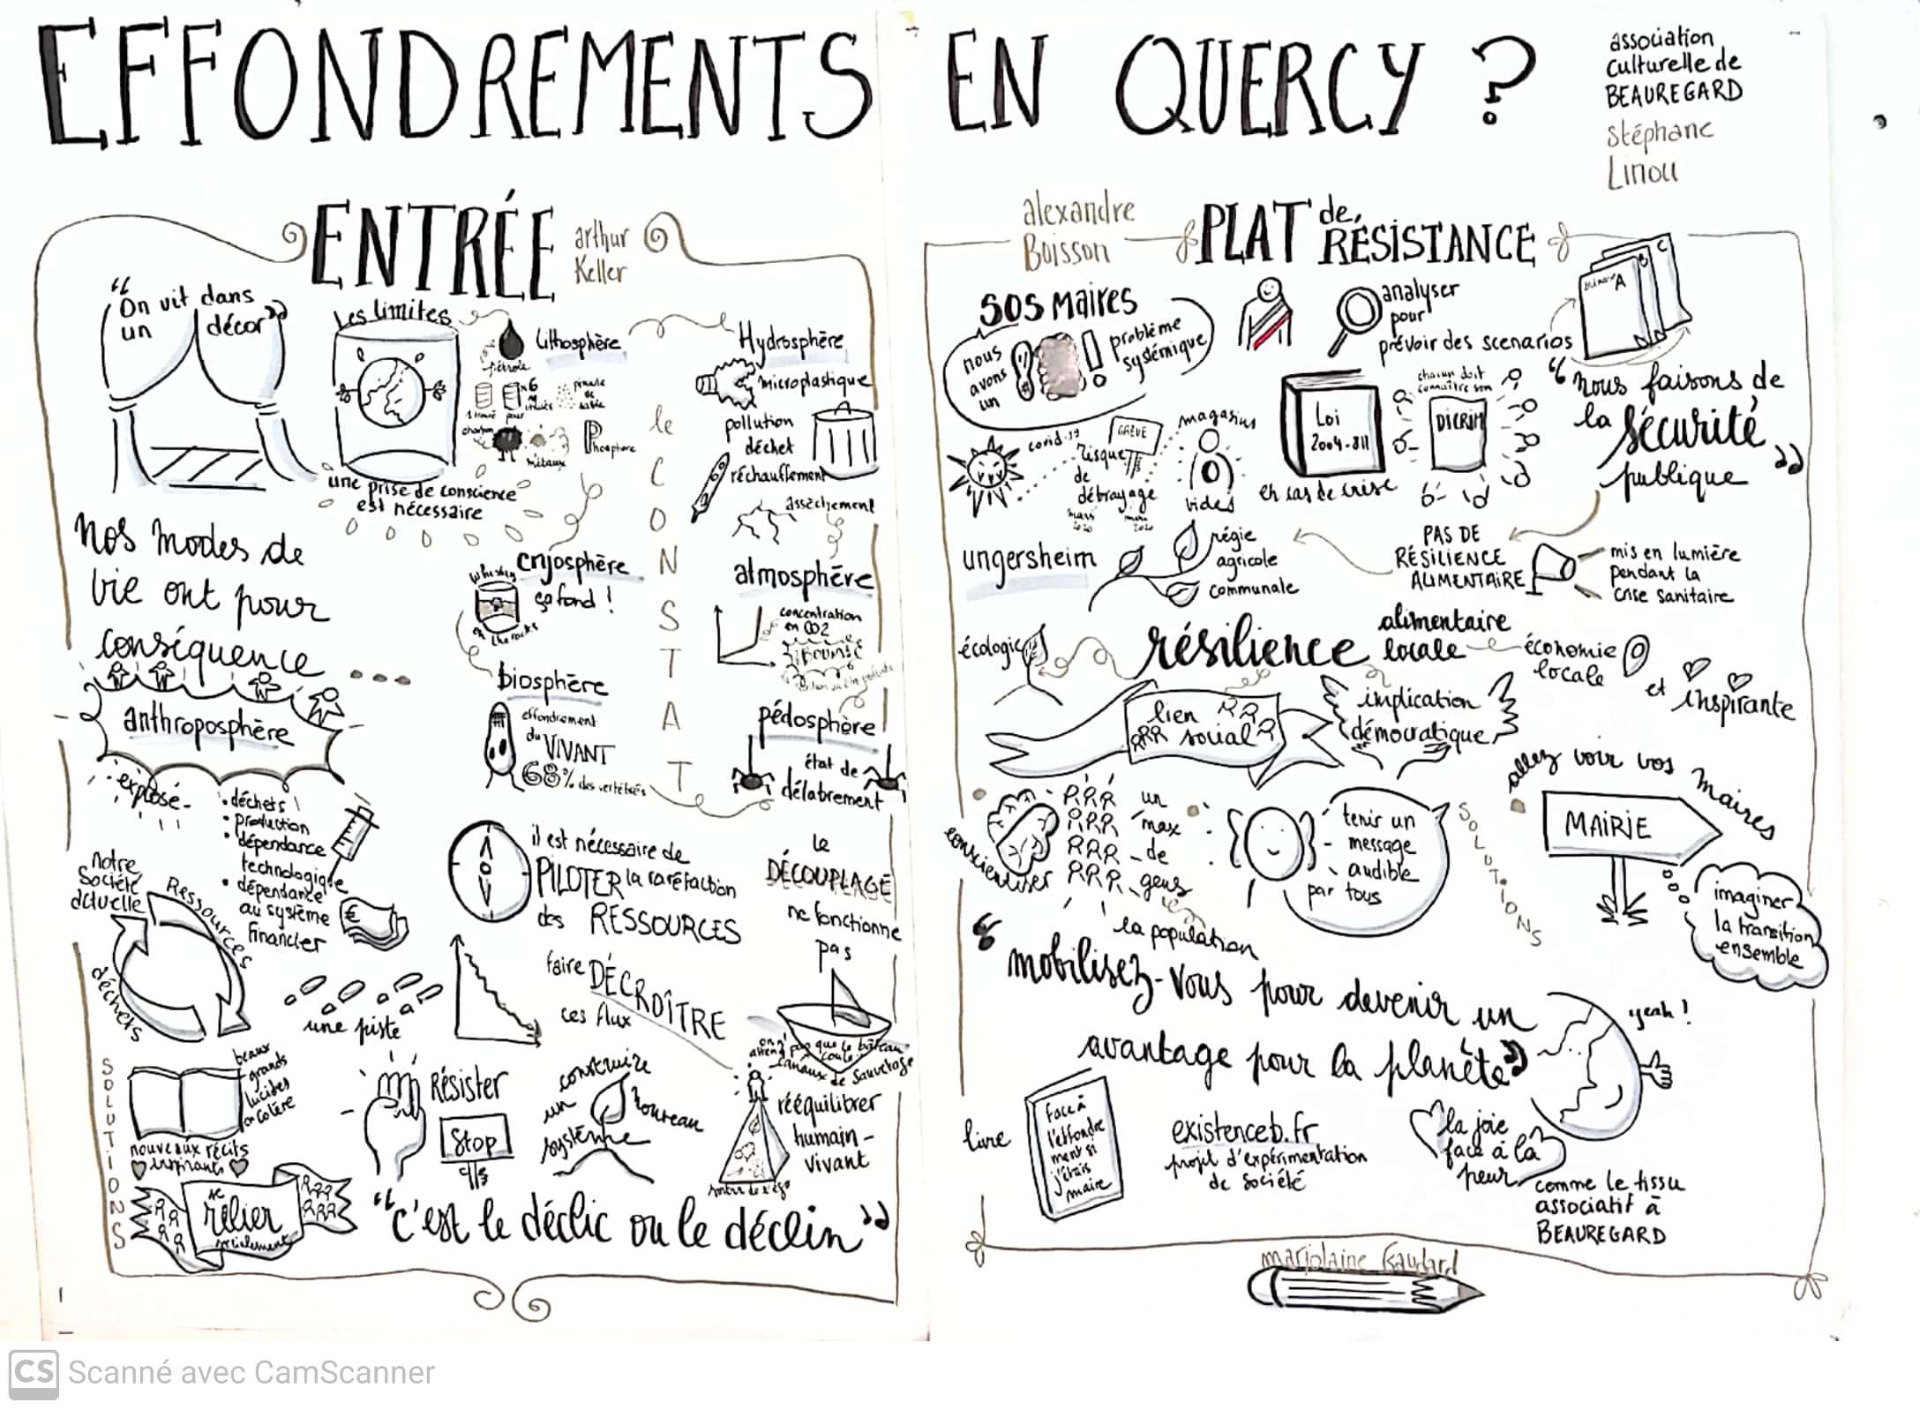 EFFONDREMENTS EN QUERCY ?
association
culturelle de
BEAUREGARD
Stéphane
Linou
ENTRÉE
arthur
Keller
“On vit dans
un décor”
Les limites
une prise de conscience
est nécessaire
Lithosphère
pétrole
charbon
métaux
Phosphore
Hydrosphère
microplastique
pollution
déchet
réchauffement
assèchement
le CONSTAT
cryosphère
ça fond !
whisky
on the rocks
atmosphère
concentration
en CO2
biosphère
effondrement
du VIVANT
68% des vertébrés
pédosphère
état de
délabrement
Nos modes de
vie ont pour
conséquence ...
anthroposphère
explosé
• déchets
• production
• dépendance
technologique
• dépendance
au système
financier
€
notre
société
actuelle
Ressources
déchets
il est nécessaire de
PILOTER la raréfaction
des RESSOURCES
le
DÉCOUPLAGE
ne fonctionne
pas
une piste
faire DÉCROÎTRE
ces flux
on attend pas que le bateau
coule
canaux de sauvetage
SOLUTIONS
beaux
grands
lucides
en colère
nouveaux récits
inspirants
Résister
Stop
construire
un nouveau
système
rééquilibrer
humain-
vivant
se
relier
socialement
“c'est le déclic ou le déclin”
alexandre
Boisson
PLAT de RÉSISTANCE
SOS Maires
nous
avons
un
problème
systémique
analyser
pour
prévoir des scenarios
A
B
C
covid-19
risque
de
débrayage
mars
2020
GRÈVE
magasins
vides
Loi
2004-811
en cas de crise
chacun doit
connaître son
DICRIM
“nous faisons de
la sécurité
publique”
ungersheim
régie
agricole
communale
PAS DE
RÉSILIENCE
ALIMENTAIRE
mis en lumière
pendant la
crise sanitaire
écologie
résilience
alimentaire
locale
économie
locale
et inspirante
lien
social
implication
démocratique
allez voir vos maires
MAIRIE
conscientiser
un
max
de
gens
la population
tenir un
message
audible
par tous
SOLUTIONS
imaginer
la transition
ensemble
“mobilisez-vous pour devenir un
avantage pour la planète”
yeah !
livre
face à
l'effondre
ment si
j'étais
maire
existenceb.fr
projet d'expérimentation
de société
la joie
face à la
peur
comme le tissu
associatif à
BEAUREGARD
marjolaine Gaudard
CS Scanné avec CamScanner